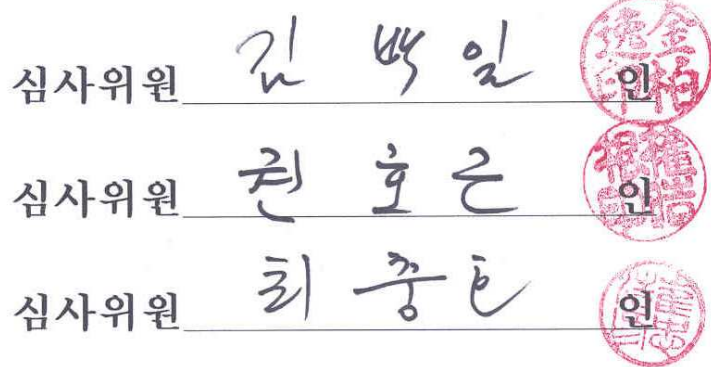 심사위원 김 백 일 인
심사위원 권 호 근 인
심사위원 최 충 호 인